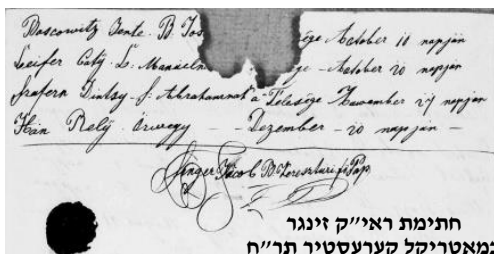 Moscowitz Jente. B. Jos ége October 10 napján
Leifer Caty. L. Manueln ge - October 20 napján
Diutsy - J. Abrahamnak a Felesége November 27 napján
Kán Rely. özvegy - - Dezember - 20 napján -
Singer Jácob B. Kereszturi Pap
חתימת ראי״ק זינגר
במאטריקל קערעסטיר תר״ח